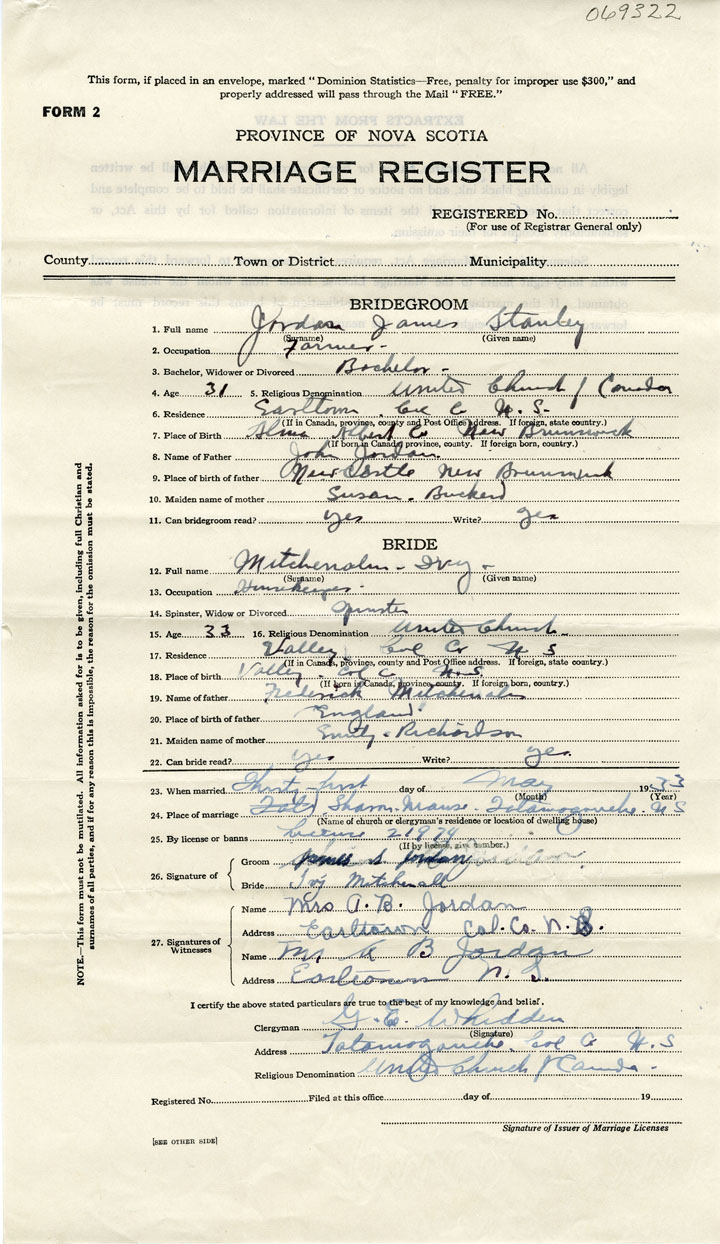 069322
This form, if placed in an envelope, marked "Dominion Statistics—Free, penalty for improper use $300," and
properly addressed will pass through the Mail "FREE."
FORM 2
PROVINCE OF NOVA SCOTIA
MARRIAGE REGISTER
REGISTERED No.
(For use of Registrar General only)
County Town or District Municipality
BRIDEGROOM
1. Full name Jordan James Stanley
(Surname) (Given name)
2. Occupation Farmer -
3. Bachelor, Widower or Divorced Bachelor -
4. Age 31 5. Religious Denomination United Church of Canada
6. Residence Earltown Col C N. S-
(If in Canada, province, county and Post Office address. If foreign, state country.)
7. Place of Birth Alma Albert Co New Brunswick
(If born in Canada, province, county. If foreign born, country.)
8. Name of Father John Jordan
9. Place of birth of father New Castle New Brunswick
10. Maiden name of mother Susan
11. Can bridegroom read? yes Write? yes
BRIDE
12. Full name - Ivy -
(Surname) (Given name)
13. Occupation Housekeeper
14. Spinster, Widow or Divorced Spinster
15. Age 33 16. Religious Denomination United Church
17. Residence Valley Col Co N S
(If in Canada, province, county and Post Office address. If foreign, state country.)
18. Place of Birth Valley Col C N.S.
(If born in Canada, province, county. If foreign born, country.)
19. Name of father Frederick
20. Place of birth of father "England"
21. Maiden name of mother Emily Richardson
22. Can bride read? yes Write? yes.
23. When married day of May 1933
(Month) (Year)
24. Place of marriage Manse Tatamagouche N S
(Name of church or clergyman's residence or location of dwelling house)
25. By license or banns License 21974
(If by license, give number.)
26. Signature of
Groom James S Jordan
Bride Ivy Mitchenall
27. Signatures of Witnesses
Name Mrs A. B. Jordan
Address Earltown Col. Co. N.
Name Mr A B Jordan
Address Earltown N. S.
I certify the above stated particulars are true to the best of my knowledge and belief.
Clergyman G. E. Whidden
(Signature)
Address Tatamagouche Col C N. S
Religious Denomination United Church of Canada -
Registered No. Filed at this office day of 19
Signature of Issuer of Marriage Licenses
[SEE OTHER SIDE]
NOTE.—This form must not be mutilated. All information asked for is to be given, including full Christian and
surnames of all parties, and if for any reason this is impossible, the reason for the omission must be stated.